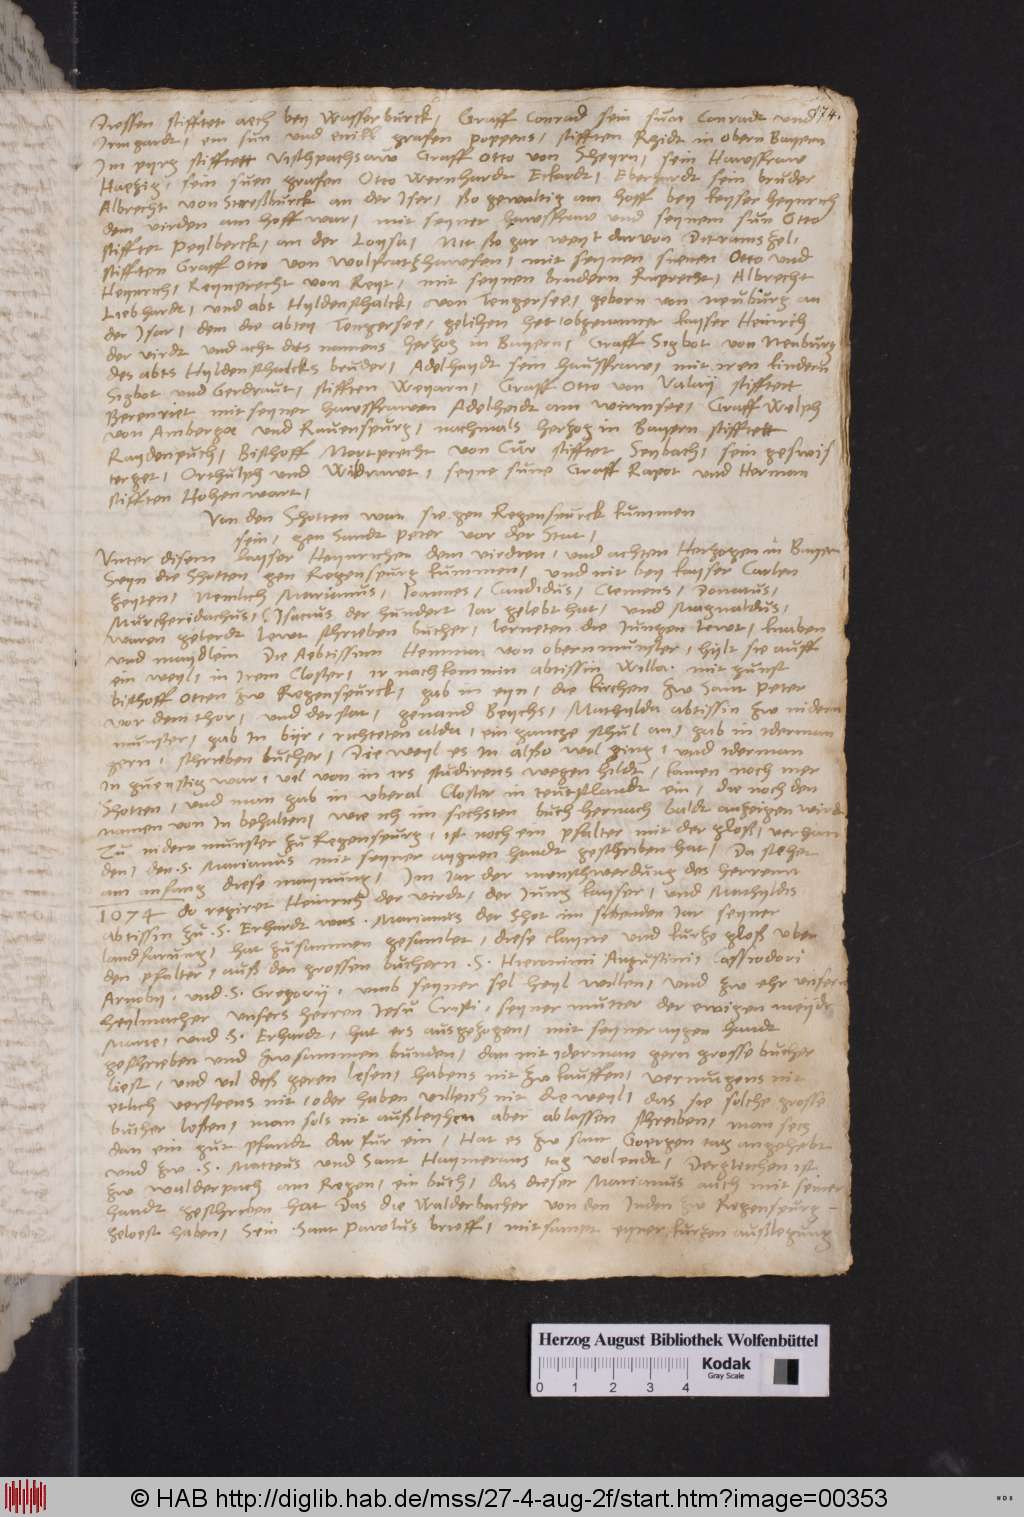 174.
stifftet auch bey Wasserburck, Graff Conrad sein sun Conradt und
Irmgardt, ein sun und enikl grafen poppens, stifften Rhidt in obern Bayern
Im pyrg stifftett Vischpachsaw Graff Otto von Scheyrn, sein Hawsfraw
Haczig, sein suen grafen Otto Wernhardt Eckardt, Eberhardt sein bruder
Albrecht von an der Iser, so gewaltig am Hoff bey keyser Heynrich
dem virden am hoff war, mit seyner hawsfraw und seynem sun Otto
stifftet Peylberck, an der Loysa, Nit so gar weyt darvon Ditramszel,
stifften Graff Otto von Wolfratzhawsen, mit seynen suenen Otto und
Heynrich, Reynprecht von Reyt, mit seynen brudern Ruprecht, Albrecht
Liebhardt, und abt Hyldenschalck, von Tengersee, geborn von neuburg an
der Isar, dem die abtey Tengersee, gelihen het obgenanter kayser Heinrich
der virdt und acht des namens herzog in Bayern, Graff Sigbot von Neuburg
des abts Hyldenschalcks bruder, Adelhaydt sein hausfraw, mit iren kindern
Sigbot und Gerdraut, stifften Weyarn, Graff Otto von Valay stifftett
Berenriet mit seyner hawsfrawen Adelheidt am wirmsee, Graff Welph
von Ambergae und Rauenspurg, nachmals herzog in Bayern stifftett
Raydenpuch, Bischoff Nortprecht von Cur stifftet Seybach, sein geswis
terget, Orthulph und Widruet, seyne sune Graff Rapot und Herman
stifften Hohenwart,
Von den Schotten wan sie gen Regenspurck kummen
sein, gen Sandt Peter vor der Stat,
Unter disem kayser Heynrichen dem virdten, und achten Herzogen in Bayern
Seyn die Schotten gen Regenspurg kummen, und nit bey kayser Carlen
zeyten, Nemlich Marianus, Ioannes, Candidus, Clemens, Donatus,
Murcheridachus, Isacius der hundert Iar gelebt hat, und Magnaldus,
waren gelerdt lewt schrieben bucher, lerneten die Iungen lewt, knaben
und maydlein Die Aebtissinn Hemman von obernmunster, hylt sie auff
ein weyl, in irem Closter, ir nachkommin abtissin Willa. mit gunst
bischoff Otten zw Regenspurck, gab in eyn, die kirchen zw Sant Peter
vor dem thor, und der stat, genand Weychs, Mathylda abtissin zw nidern
munster, gab In byr, richteten alda, ein gancze schul an, gab in iderman
gern, schrieben bucher, Die weyl es In also wol ging, und iderman
in guenstig war, vil von in irs studirens wegen hildt, kamen noch mer
Schotten, und man gab in uberal Closter in teutschlandt ein, die noch den
namen von In behalten, wie ich im sechsten buch hernach baldt anzeigen wirdt
Zu nidern munster zu Regenspurg, ist noch ein psalter mit der glos, verhan
den, den .S. Marianus mit seyner aygnen handt geschriben hat, Da stehet
am anfang diese maynung, Im Iar der menschwerdung des herrenn
1074 do regiret Heinrich der virdt, der Iung kayser, und Mathyldis
abtissin zu .S. Erhardt was. Marianus der Schot im sibenden Iar seyner
landfarung, hat zusammen gesamlet, diese clayne und kurze glos uber
den psalter, auss den grossen buchern .S. Hieronimi Augustini, Cassiodori
Arnoby, und .S. Gregorij, umb seyner sel heyl willen, und zw ehr unsers
heylmacher unsers herren Iesu Cristi, seyner mutter der ewigen meydt
Marie, und S. Erhardt, hat ers ausgezogen, mit seyner aygen handt
geschrieben und zwsammen bunden, dan nit iderman gern grosse bucher
liest, und vil dess geren lesen, habens nit zw kauffen, vermugens nit
etlich versteens nit, oder haben villeich nit die weyl, das sie solche grosse
bucher lessen, man sols nit ausleyhen aber ablassen schreiben, man secz
dan ein gut pfandt dar fur ein, Hat es zw sant Goergen tag angehebt
und zw .S. Matteus und Sant Haymerans tag volendt, Dergleichen ist
zw walderpach am Regen, ein buch, das dieser Marianus auch mit seiner
handt geschrieben hat Das die Walderbacher von den Iuden zw Regenspurg
geloest haben, Sein Sant Pawlus brieff, mit sampt eyner kurzen ausslegung
Herzog August Bibliothek Wolfenbüttel
Kodak
Gray Scale
0 1 2 3 4
© HAB http://diglib.hab.de/mss/27-4-aug-2f/start.htm?image=00353